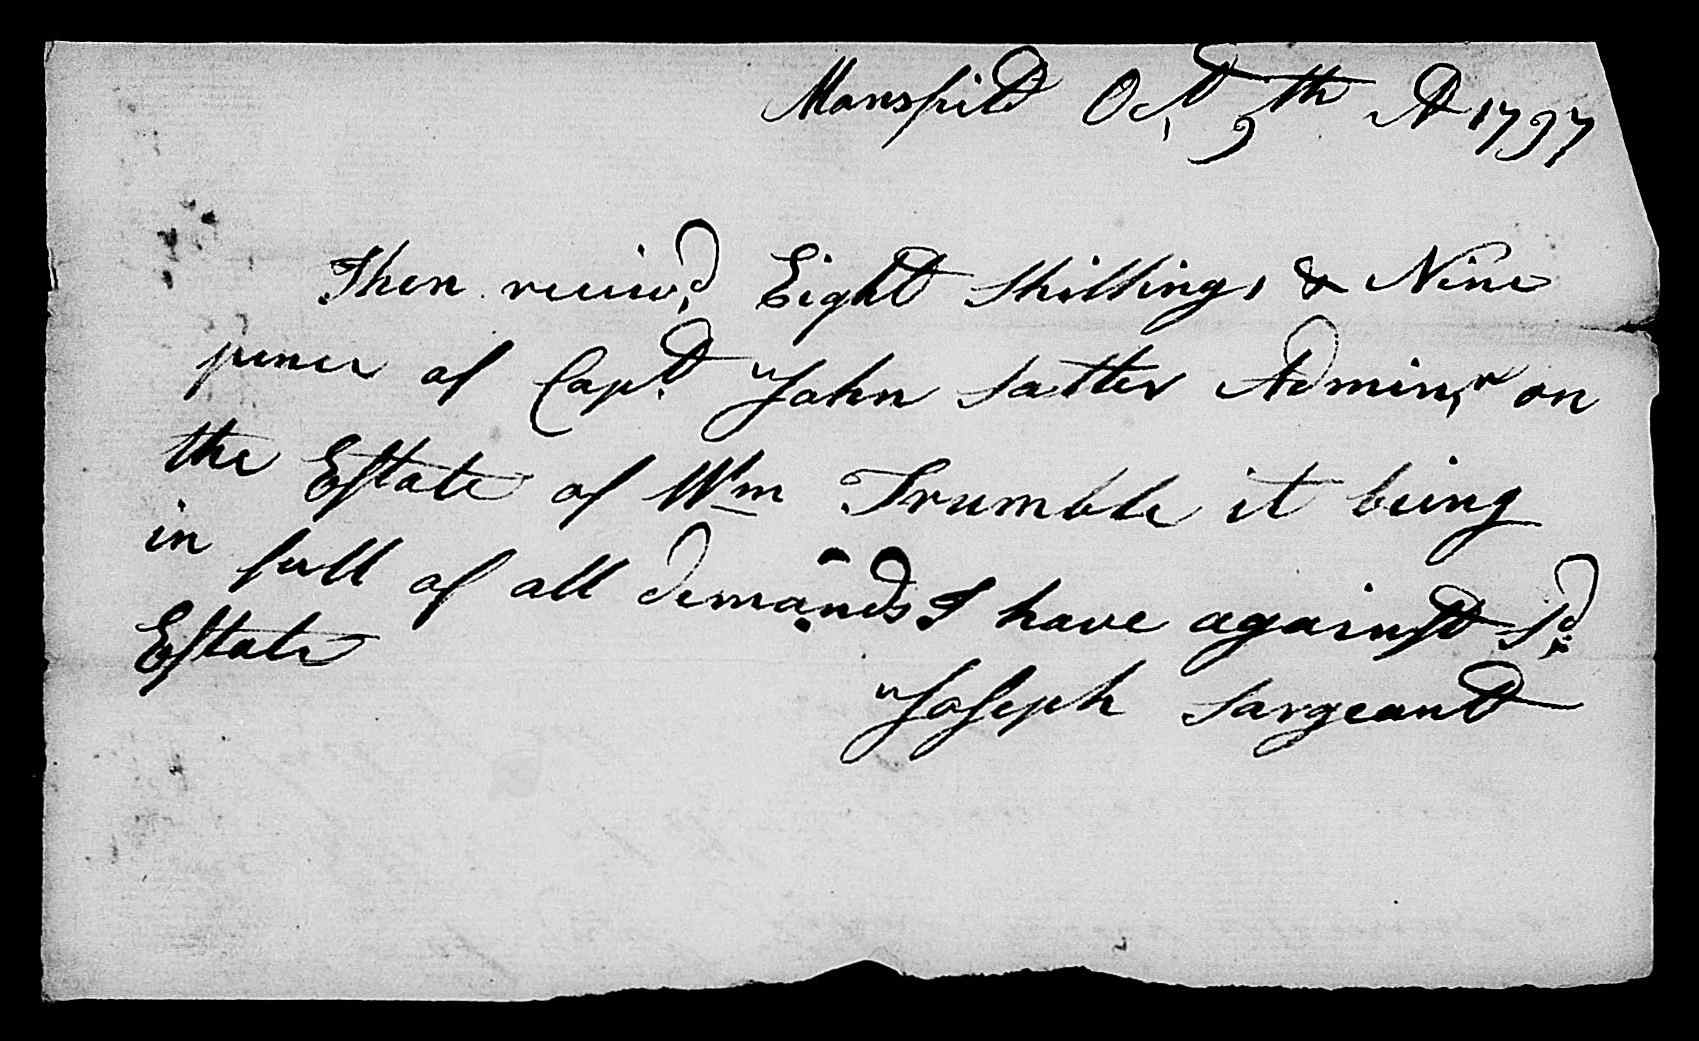 Mansfield Oct. 9th AD 1797
Then receiv,d Eight Shillings & Nine
pence of Capt. John Salter Admin,r on
the Estate of Wm Trumble it being
in full of all demands I have against Sd
Estate
Joseph Sargeant